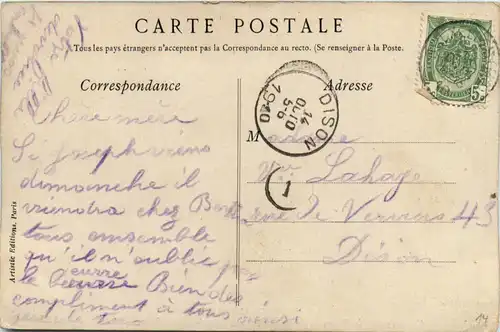 CARTE POSTALE
Tous les pays étrangers n'acceptent pas la Correspondance au recto. (Se renseigner à la Poste.
Correspondance
Adresse
chère mère
Si joseph viens
dimanche il
viendra chez
tous ensemble
qu'il n'oublie pas
le beurre Bien des
compliment à tous
DISON
14
OCTO
5-6
1910
1
Madame
Vve Lahaye
rue de Verviers 43
Dison
Artistic Editions, Paris
5
14